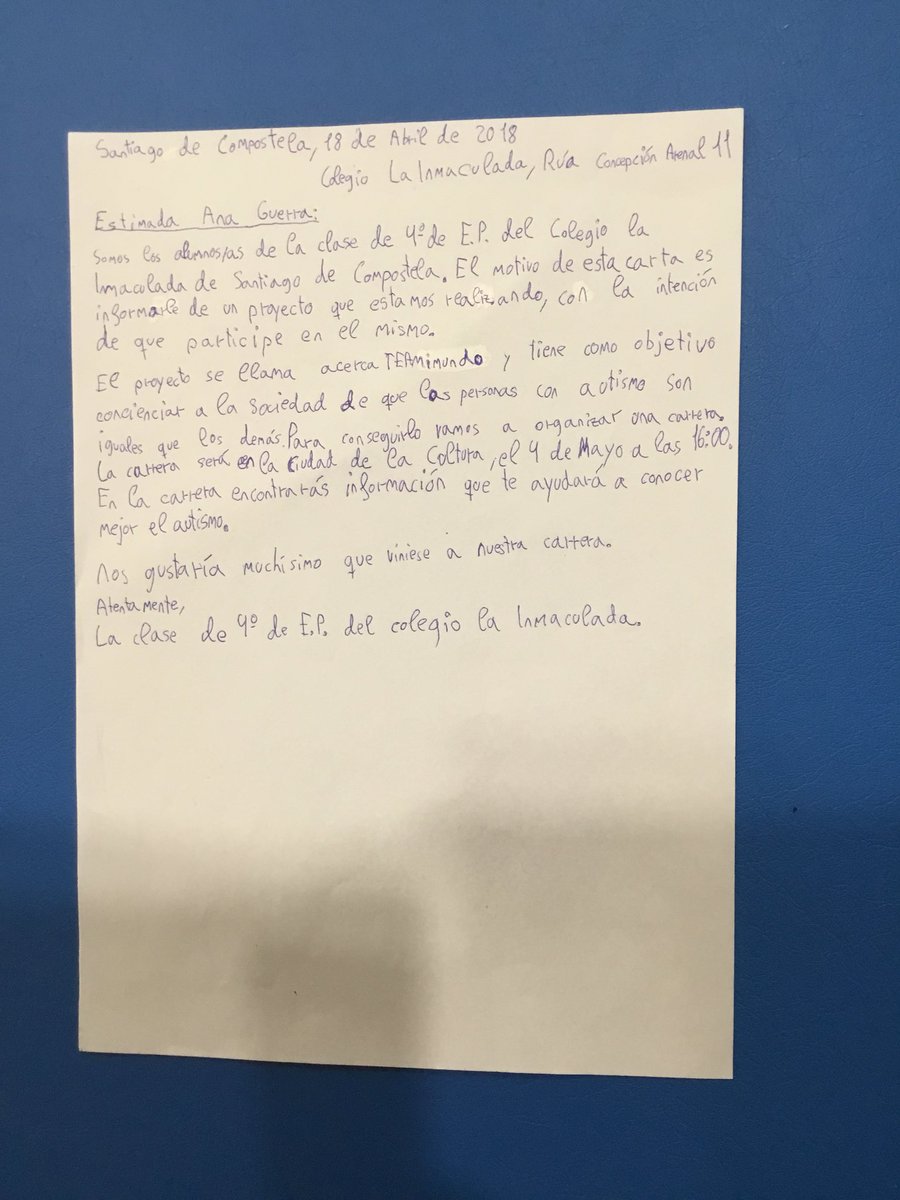 Santiago de Compostela, 18 de Abril de 2018
Colegio La Inmaculada, Rúa Concepción Arenal 11
Estimada Ana Guerra:
Somos los alumnos/as de la clase de 4º de E.P. del Colegio la
Inmaculada de Santiago de Compostela. El motivo de esta carta es
informarle de un proyecto que estamos realizando, con la intención
de que participe en el mismo.
El proyecto se llama acerca TEAmimundo y tiene como objetivo
concienciar a la sociedad de que las personas con autismo son
iguales que los demás. Para conseguirlo vamos a organizar una carrera.
La carrera será en la Ciudad de la Cultura, el 4 de Mayo a las 16:00.
En la carrera encontrarás información que te ayudará a conocer
mejor el autismo.
Nos gustaría muchísimo que viniese a nuestra carrera.
Atentamente,
La clase de 4º de E.P. del colegio la Inmaculada.